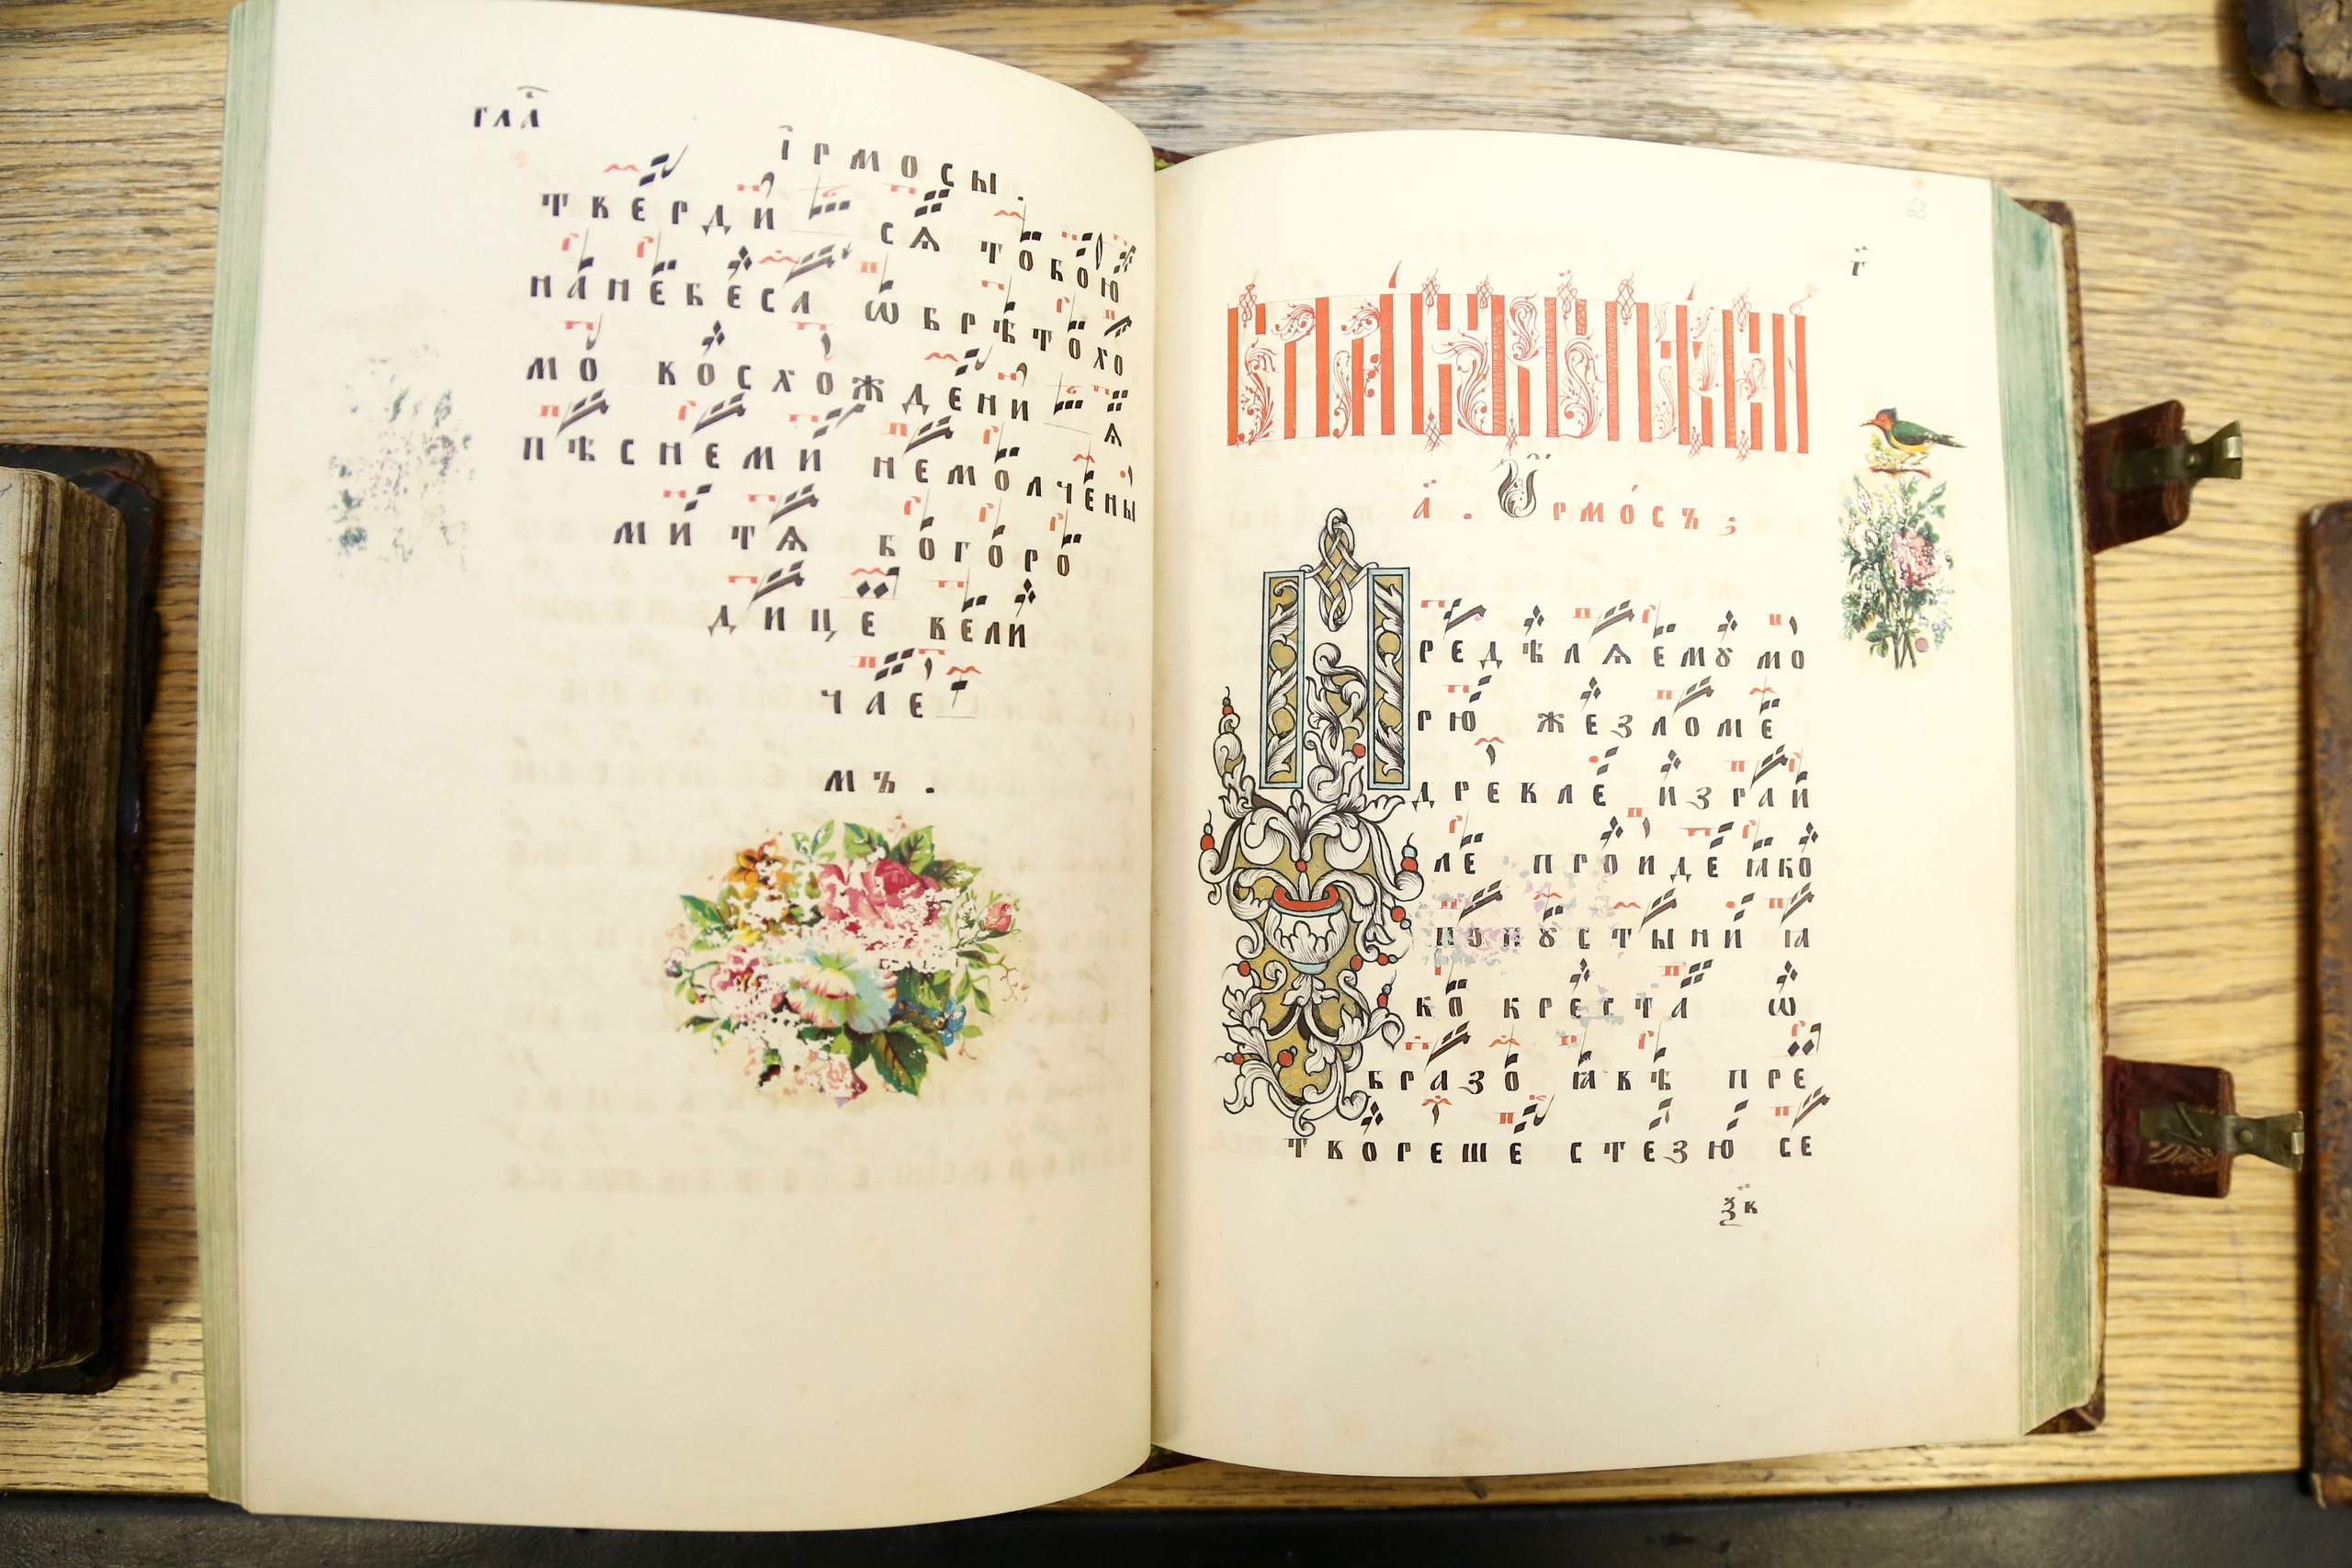 гла
ірмосы.
ткерди сѧ тобою
нанебеса ѡбрѣтохо
мо косхождени ѧ
пѣснеми немолчены
ми тѧ богоро
дице кели
чае
мъ.
63
г҃
гласъ г҃ пѣсн
а҃. Ирмосъ
Предѣлѧемꙋ мо
рю жезломе
дрекле израи
ле проиде ꙗко
попꙋстыни ꙗ
ко креста ѡ
бразо ꙗкѣ пре
ткореше стезю се
ѯк